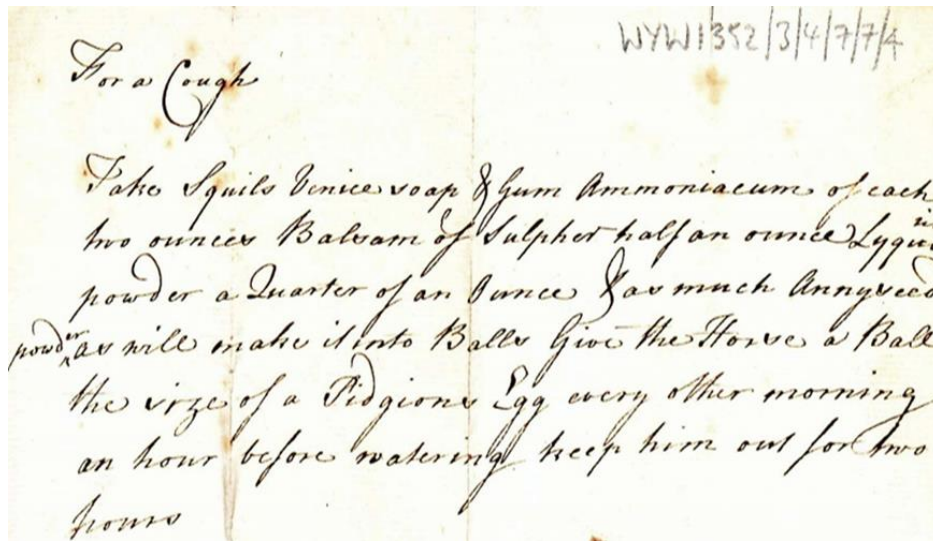 WYW1352/3/4/7/7/4
For a Cough
Take Squils Venice soap & Gum Ammoniacum of each
two ounces Balsam of Sulpher half an ounce
powder a Quarter of an Ounce & as much Annyseed
powder as will make it into Balls Give the Horse a Ball
the size of a Pidgions Egg every other morning
an hour before watering keep him out for two
hours